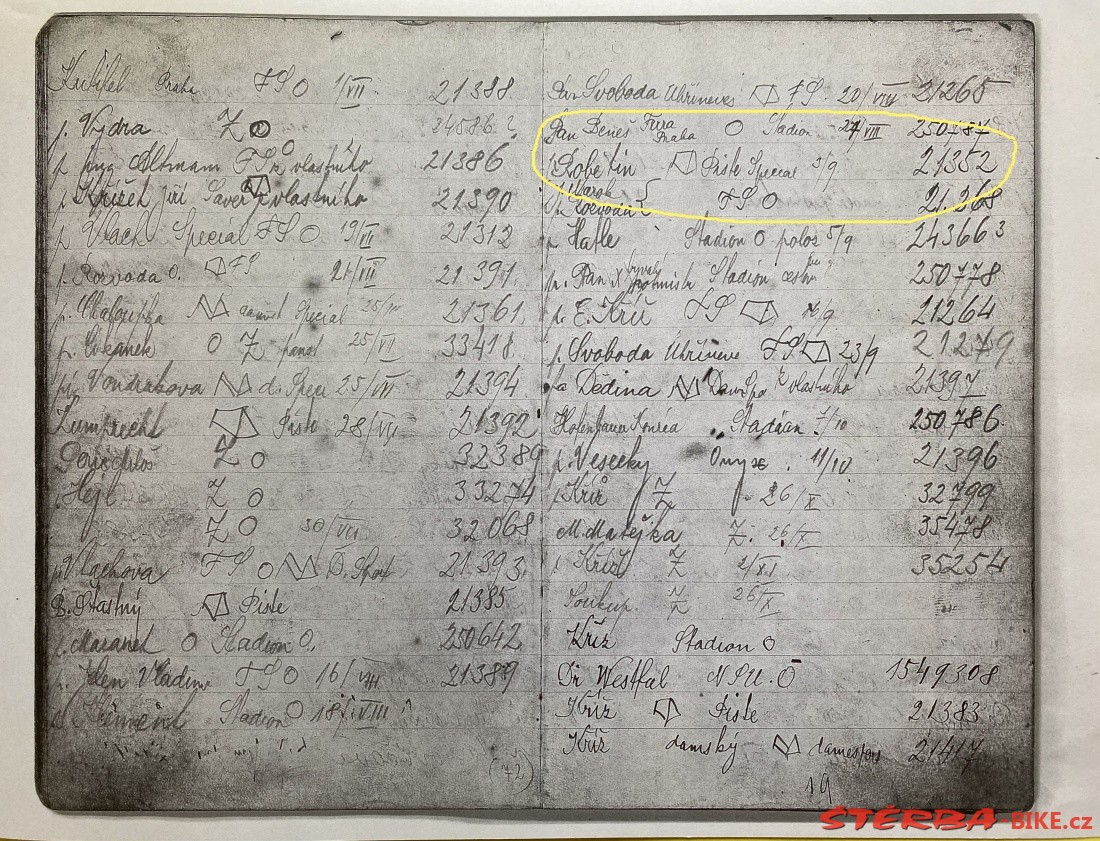 Kubikel Praha FS O 1/VII. 21388
p. Vydra Z O 34586?
p. Ing. Altmann FS z vlastního 21386
p. Křížek Jiří z vlastního 21390
p. Vlach Special FS O 19/VII 21312
p. Rozvoda O. FS 21/VII 21391
p. Special 21361
p. Cikánek O Z 25/VII 33418
Vondrakova d. Speci 25/VII 21394
Lumprecht Piste 28/VII 21392
Z O 32389
Hejl Z O 33274
Z O 30/VII 32068
p. Vlachova FS O D. Sport 21393
p. Stastný Piste 21385
p. Maranet O Stadion O. 250642
p. Jden Vladimr FS O 16/VIII 21389
Stadion O 18/VIII
(72)
Pan Svoboda Uhříneves FS 20/VIII 21265
Pan Beneš Fura Praha O Stadion 27/VIII 250787
p. Robetin Piste Special 3/9 21352
p. Rozvoda FS O 21368
p. Hatle Stadion O polos 5/9 243663
p. Pan X bývalý Stadion 250778
p. E. Kříž FS 16/9 21264
p. Svoboda Uhříneve FS 23/9 21279
Dědina DamSpo z vlastního 21397
Stadion 7/10 250786
p. Vesecky Onyx 11/10 21396
p. Kříž Z 26/X 32799
M. Matějka Z. 26/X 35478
p. Kříž Z 2/XI 35254
Soukup. Z 26/X
Kříž Stadion O
Dr Westfal NSU. O 1549308
Kříž Piste 21383
Kříž damský 21417
19
ŠTĚRBA-BIKE.cz